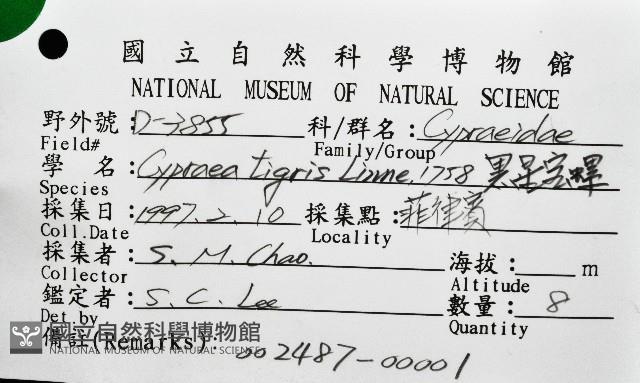 國立自然科學博物館
NATIONAL MUSEUM OF NATURAL SCIENCE
野外號：D-3855 科/群名：Cypraeidae
Field# Family/Group
學 名：Cypraea tigris Linne, 1758 黑星宝螺
Species
採集日：1997. 2. 10 採集點：菲律賓
Coll.Date Locality
採集者：S. M. Chao. 海拔：m
Collector Altitude
鑑定者：S. C. Lee 數量：8
Det.by Quantity
備註(Remarks)：002487-00001
國立自然科學博物館
NATIONAL MUSEUM OF NATURAL SCIENCE